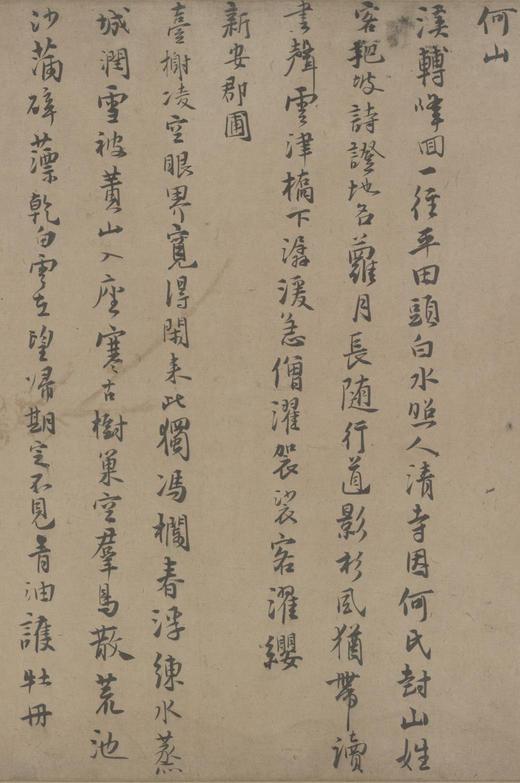 何山
溪轉峰回一徑平田頭白水照人清寺因何氏封山姓
客把坡詩證地名蘿月長随行道影杉風猶帶讀
書聲雲津橋下潺湲急僧濯袈裟客濯纓
新安郡圃
臺榭凌空眼界寬得閑来此獨馮欄春浮練水蒸
城潤雪被黃山入座寒古樹巢空羣鳥散荒池
沙滿碎萍乾白雲在望歸期定不見青油護牡丹